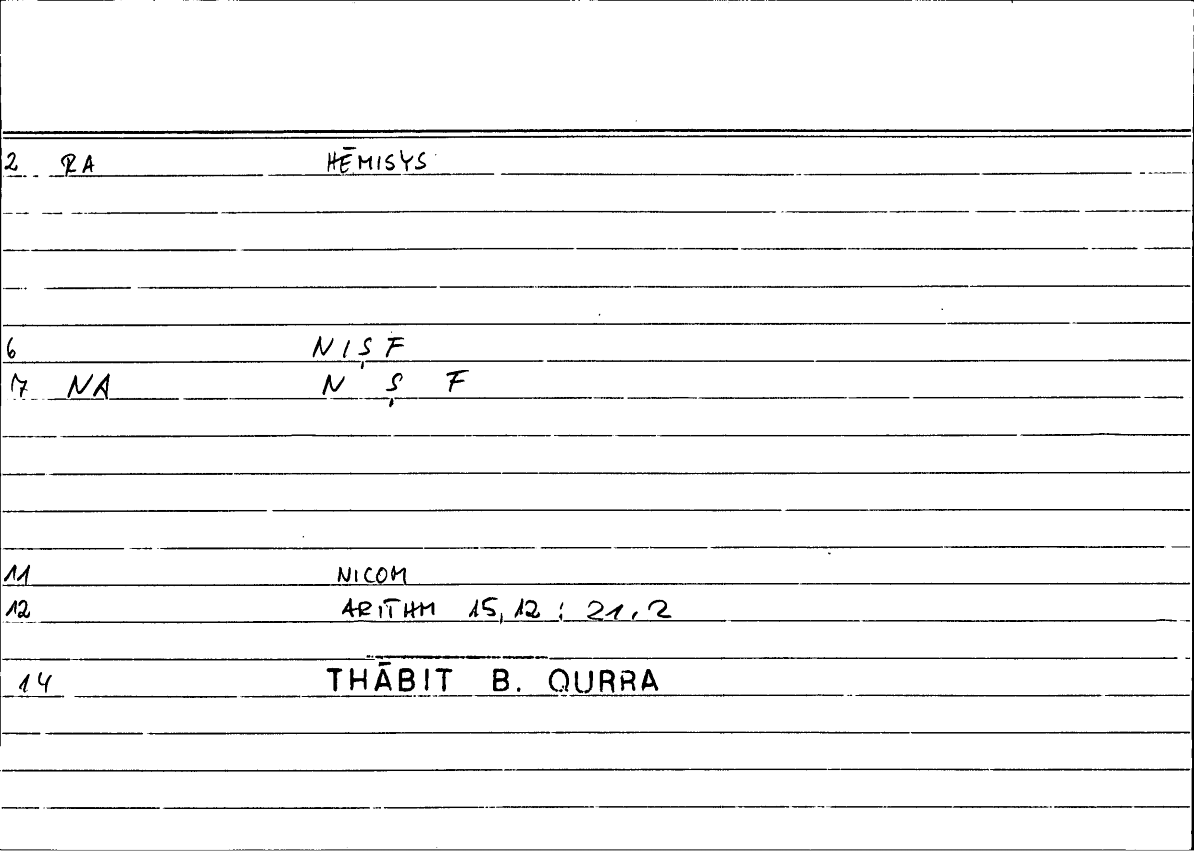 2 RA HĒMISYS
6 NIṢF
7 NA N Ṣ F
11 NICOM
12 ARITHM 15,12 : 21,2
14 THĀBIT B. QURRA